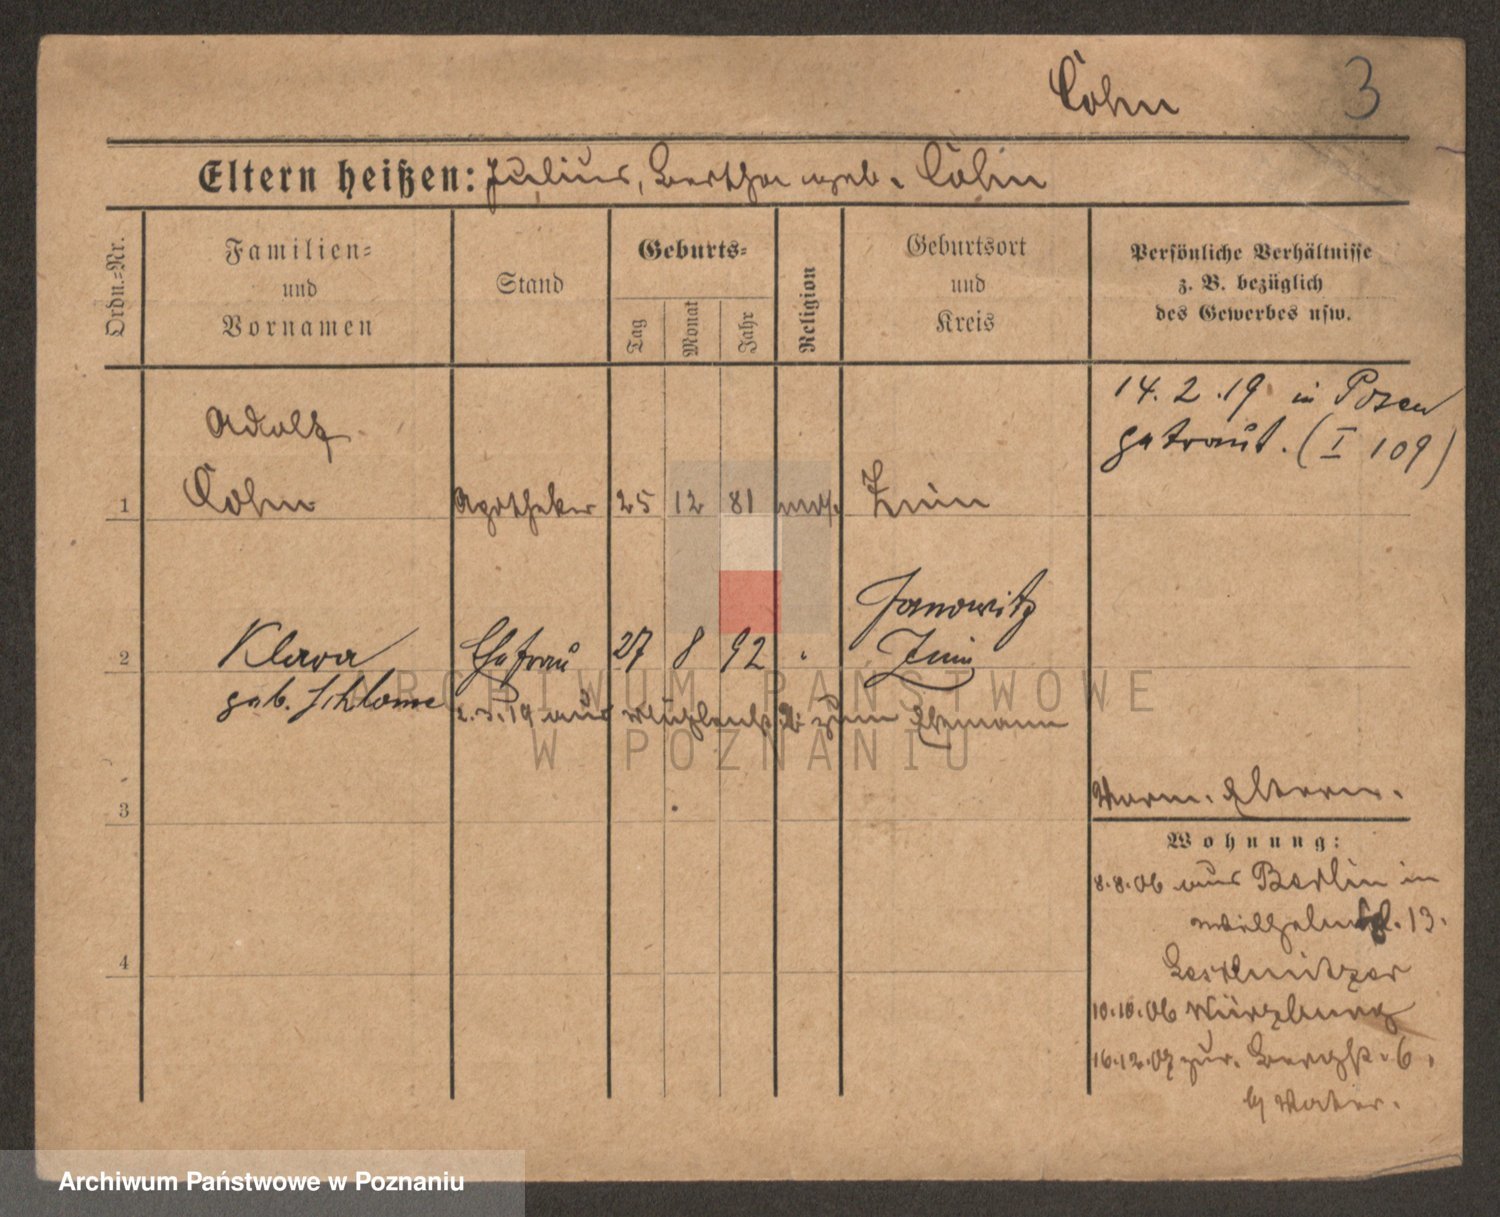 Cohn 3
Eltern heißen: Julius, Bertha geb. Cohn
Ordn.=Nr.
Familien=
und
Vornamen
Stand
Geburts=
Tag
Monat
Jahr
Religion
Geburtsort
und
Kreis
Persönliche Verhältnisse
z. B. bezüglich
des Gewerbes usw.
14.2.19 in Posen
getraut. (I 109)
Adolf
1 Cohn Apotheker 25 12 81 mos. Znin
Janowitz
2 Klara Ehefrau 27 8 92 Znin
geb. Schlome
3.19 aus zum Ehemann
3
4
Vorm. Eltern.
Wohnung:
8.8.06 aus Berlin in
13.
10.10.06 Würzburg
16.12.07 zur. Bergstr. 6.
b/ Vater.
ARCHIWUM PAŃSTWOWE
W POZNANIU
Archiwum Państwowe w Poznaniu